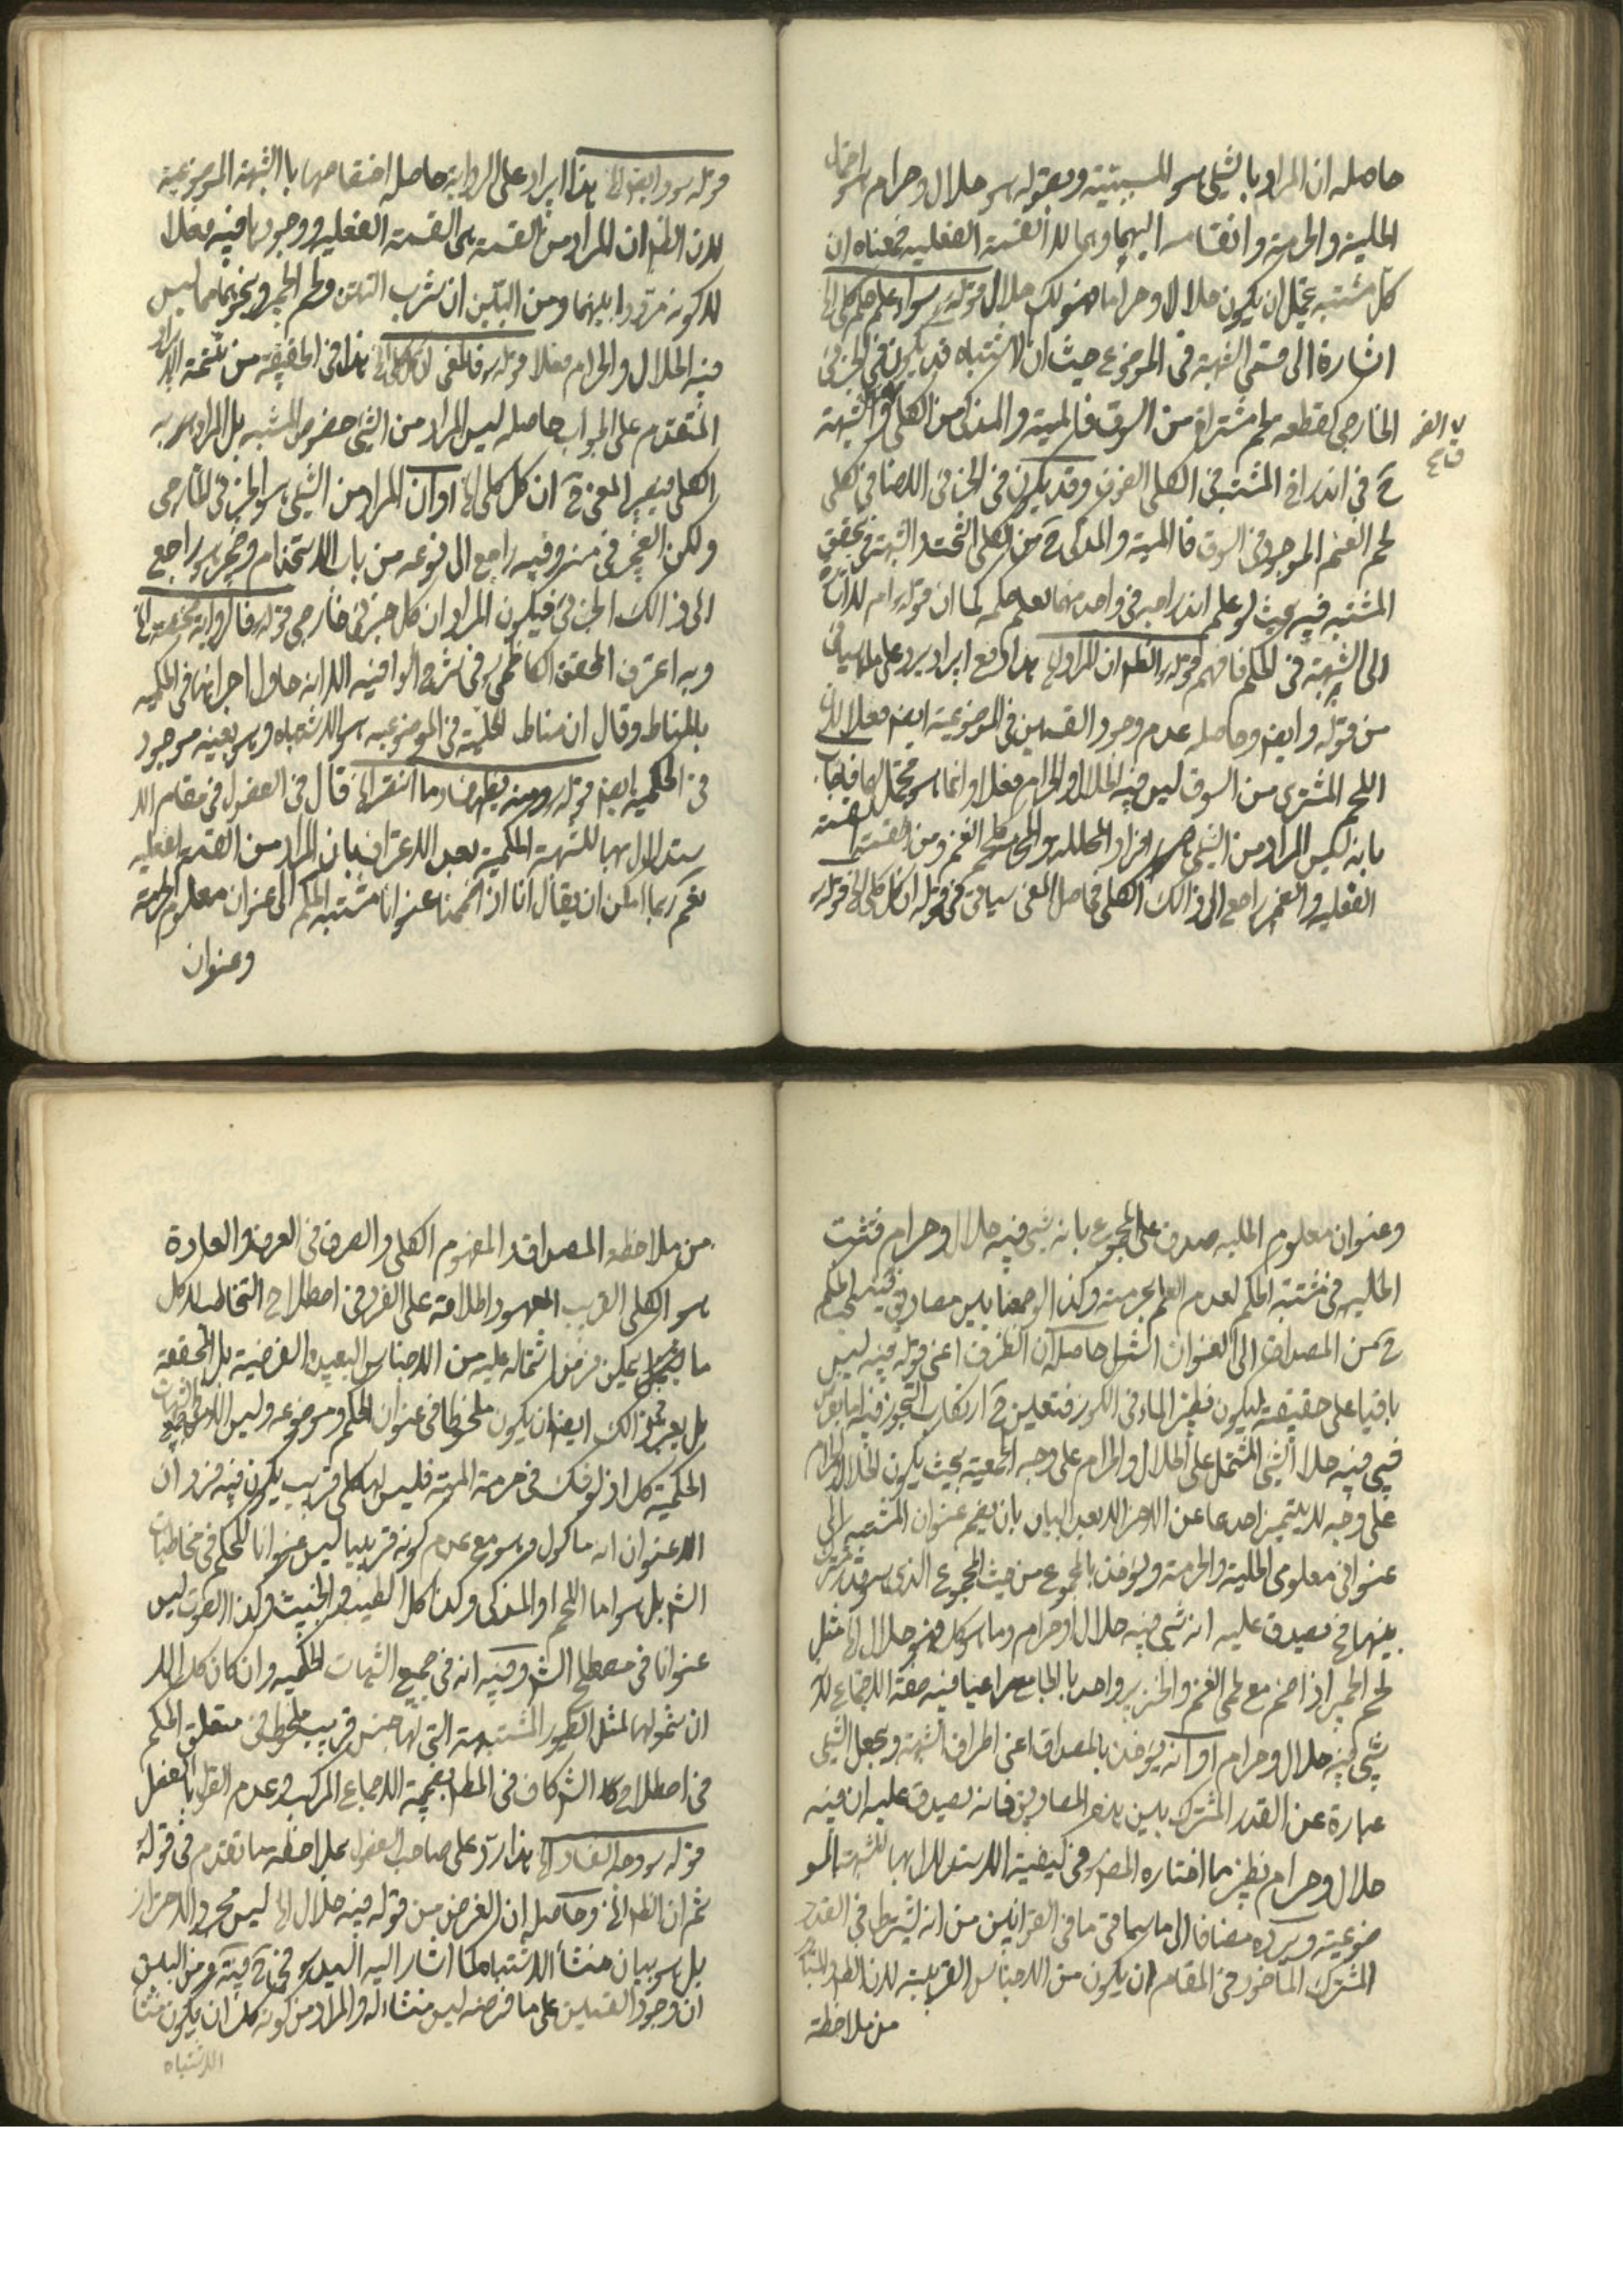 حاصله ان المراد بالشئ هو المشتبه وبقوله هو حلال وحرام هو احتمال
الحلية والحرمة وانقسامه اليهما وهما لا القسمة الفعليه فمعناه ان
كل مشتبه يحتمل ان يكون حلالا وحراما فهو لك حلال قوله ره سواء علم حكم كلى الخ
اشارة الى قسمى الشبهة فى الموضوع حيث ان الاشتباه قد يكون فى الجزئى
الخارجى كقطعه لحم مشتراة من السوق فالميتة والمذكى من الكلى والشبهة
ح فى اندراج المشتبه فى الكلى الفوق وقد يكون فى الجزئى الاضافى ككلى
لحم الغنم الموجود فى السوق فالميتة والمذكى ح من الكلى التحت والشبهة فى تحقق
المشتبه فيه بحيث لو علم اندراجه فى واحد منهما لعلم حكمه كما ان قوله ام لا اشارة
الى الشبهة فى الحكم فافهم قوله ره الظ ان المراد الخ هذا دفع ايراد يرد على ما سياتى
من قوله وايضا وحاصله عدم وجود القسمين فى الموضوعية ايضا فعلا لان
اللحم المشترى من السوق ليس فيه الحلال والحرام فعلا وانما هو محتمل لهما فاجاب
بانه ليس المراد من الشئ افراد المحلله والمح كلحم الغنم ومن القسمة القسمة
الفعليه والضمير راجع الى ذالك الكلى فحاصل المعنى سياتى فى قوله ان كل كلى الخ قوله
قوله ره وايضا الخ هذا ايراد على الرواية حاصله اختصاصها با الشبهة الموضوعية
لان الظ ان المراد من القسمة هى القسمة الفعليه ووجودها فيه فعلا
لا كونه مرددا بينهما ومن البين ان شرب التتن ولحم الحمير ونحوهما مما ليس
فيه الحلال والحرام فعلا قوله ره فالمعنى ان كل كلى الخ هذا فى الحقيقة من تتمة الايراد
المتقدم على الجواب حاصله ليس المراد من الشئ خصوص المشتبه بل المراد به
الكلى فيصير المعنى ح ان كل كلى الخ او ان المراد من الشئ هو الجزئى الخارجى
ولكن الضمير فى منه وفيه راجع الى نوعه من باب الاستخدام وضمير هو راجع
الى ذالك الجزئى فيكون المراد ان كل جزئى خارجى قوله فالرواية مختصة الخ
وبه اعترف المحقق الكاظمى ره فى شرح الوافيه الا انه حاول اجرائها فى الحكميه
بالمناط وقال ان مناط الحلية فى الموضوعيه هو الاشتباه وهو بعينه موجود
فى الحكميه ايضا قوله ره ومنه يظهر فساد ما انتصر الخ قال فى الفصول فى مقام الا
ستدلال بها للشبهة الحكمية بعد الاعتراف بان المراد من القسمة الفعليه
نعم ربما امكن ان يقال انا اذا ضممنا عنوانا مشتبه الحكم الى عنوان معلوم الحرمة
وعنوان
وعنوان معلوم الحليه صدق على المجموع بانه شئ فيه حلال وحرام فتثبت
الحليه فى مشتبه الحكم لعدم العلم بحرمته وكذا لو جمعنا بين مصاديق
ح من المصداق الى العنوان الشمل حاصله ان الظرف اعنى قوله فيه ليس
باقيا على حقيقته ليكون نظير الماء فى الكوز فتعين ح ارتكاب التجوز فيه اما
فيه حلال الشئ المشتمل على الحلال والحرام على وجه الجمعية بحيث يكون الحلال والحرام
على وجه لا يتميز احدهما عن الاخر الا بعد البيان بان يضم عنوان المشتبه الى
عنوانى معلومى الحلية والحرمة ويؤخذ بالمجموع من حيث المجموع الذى هو قدر مشترك
بينهما فح يصدق عليه انه شئ فيه حلال وحرام وما هو كك فهو حلال الخ مثل
لحم الحمير اذا ضم مع لحمى الغنم والخنزير واحد با لجامع مراعيا فيه صفة الاجتماع لا
شئ فيه حلال وحرام او انه يؤخذ بالمصداق اعنى اطراف الشبهة ويجعل الشئ
عبارة عن القدر المشترك بين هذه المصاديق فانه يصدق عليه ان فيه
حلال وحرام نظير ما اختاره المص ره فى كيفية الاستدلال بها للشبهة المو
ضوعية ويرده مضافا الى ما سياتى ما فى القوانين من انه يشترط فى القدر
المشترك الماخوذ فى المقام ان يكون من الاجناس القريبية لان الظ والمتبادر
من ملاحظة
من ملاحظه المصداق والمفهوم الكلى والصرف فى العرف والعادة
هو الكلى القريب المعهود اطلاقه على الفرد فى اصطلاح التخاطب لا كل
ما يمكن فرض اشتماله عليه من الاجناس البعيده الفرضية بل المحققة
بل يعتبر فى ذالك ايضا ان يكون ملحوظا فى عنوان الحكم وموضوعه وليس الامر فى جميع الشبهات
الحكمية كك اذ لو شك فى حرمة الحمير فليس لها كلى قريب يكون فيه فردان
الا عنوان انه ماكول وهو مع عدم كونه قريبيا ليس عنوانا للحكم فى مخاطبات
الش بل هو اما اللحم او المذكى وكذا كل الطيب والخبيث وكذا الصوت ليس
عنوانا فى مصطلح الش وفيه انه فى جميع الشبهات الحكميه وان كان كك الا
ان شمولها لمثل الطيور المشتبهة التى لها جنس قريب ملحوظ فى متعلق الحكم
فى اصطلاح الش كاف فى المط بضميمة الاجماع المركب وعدم القول بالفصل
قوله ره وجه الفساد الخ هذا رد على صاحب الفصول بملاحظة ما تقدم فى قوله
ثم ان الظ الخ وحاصله ان الغرض من قوله فيه حلال الخ ليس مجرد الاحتراز
بل هو بيان منشأ الاشتباه كما اشار اليه السيد ره فى شرح
ان وجود القسمين على ما فرضه ليس منشاء له والمراد من كونه كك ان يكون منشأ
الاشتباه